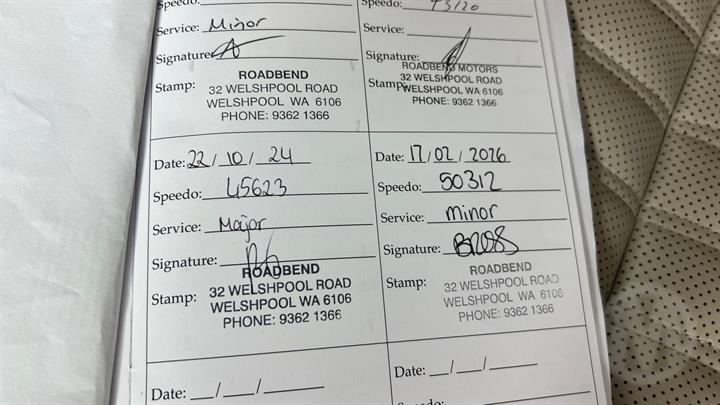 Speedo:
Service: Minor
Signature:
Stamp:
ROADBEND
32 WELSHPOOL ROAD
WELSHPOOL WA 6106
PHONE: 9362 1366
Speedo:
Service:
Signature:
Stamp:
ROADBEND MOTORS
32 WELSHPOOL ROAD
WELSHPOOL WA 6106
PHONE: 9362 1366
Date: 22 / 10 / 24
Speedo: 45623
Service: Major
Signature:
Stamp:
ROADBEND
32 WELSHPOOL ROAD
WELSHPOOL WA 6106
PHONE: 9362 1366
Date: 17/02/2026
Speedo: 50312
Service: minor
Signature:
Stamp:
ROADBEND
32 WELSHPOOL ROAD
WELSHPOOL WA 6106
PHONE: 9362 1366
Date: __/__/____
Date: __/__/____
Speedo: